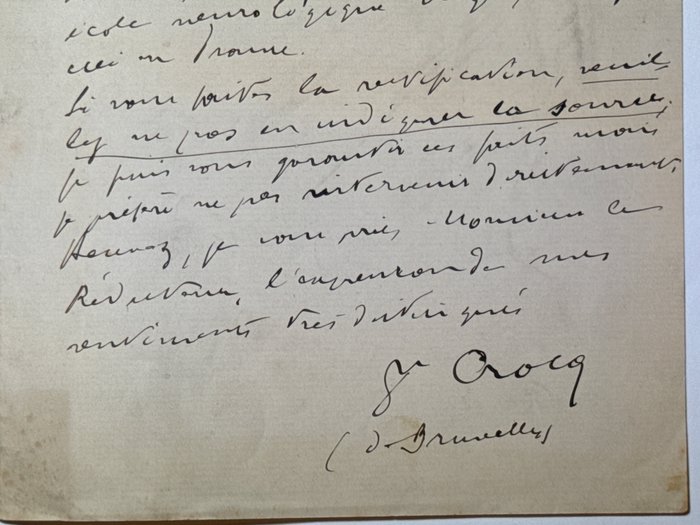 école neurologique
en France.
Si vous faites la rectification, veuil
lez ne pas en indiquer la source,
je puis vous garantir ces faits mais
je préfère ne pas intervenir directement.
Recevez, je vous prie, Monsieur le
Rédacteur, l'expression de mes
sentiments très distingués
Dr Crocq
(de Bruxelles)